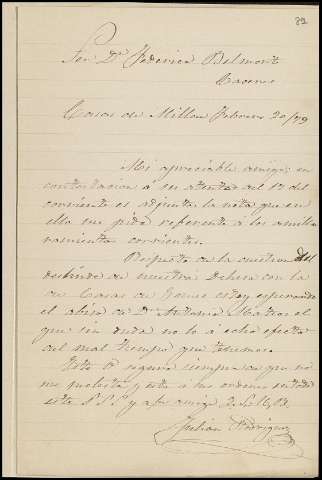 82
Sr. Dn. Federico Belmonte
Caceres
Casas de Millan Febrero 20/79
Mi apreciable amigo: en
contestacion á su atenta del 17 del
corriente es adjunta la nota que en
ella me pide referente á los amilla
ramientos corrientes.
Respecto de la cuestion del
deslinde de nuestra dehesa con la
de Casas de estoy esperando
el aviso de Dn. Antonio Matías el
que sin duda no lo á echo efecto
del mal tiempo que tenemos.
Este sigue siempre que no
me molesta y esta á las ordenes
este S.S.S. y afmo. amigo Q.S.M.B.
Julian Rodriguez